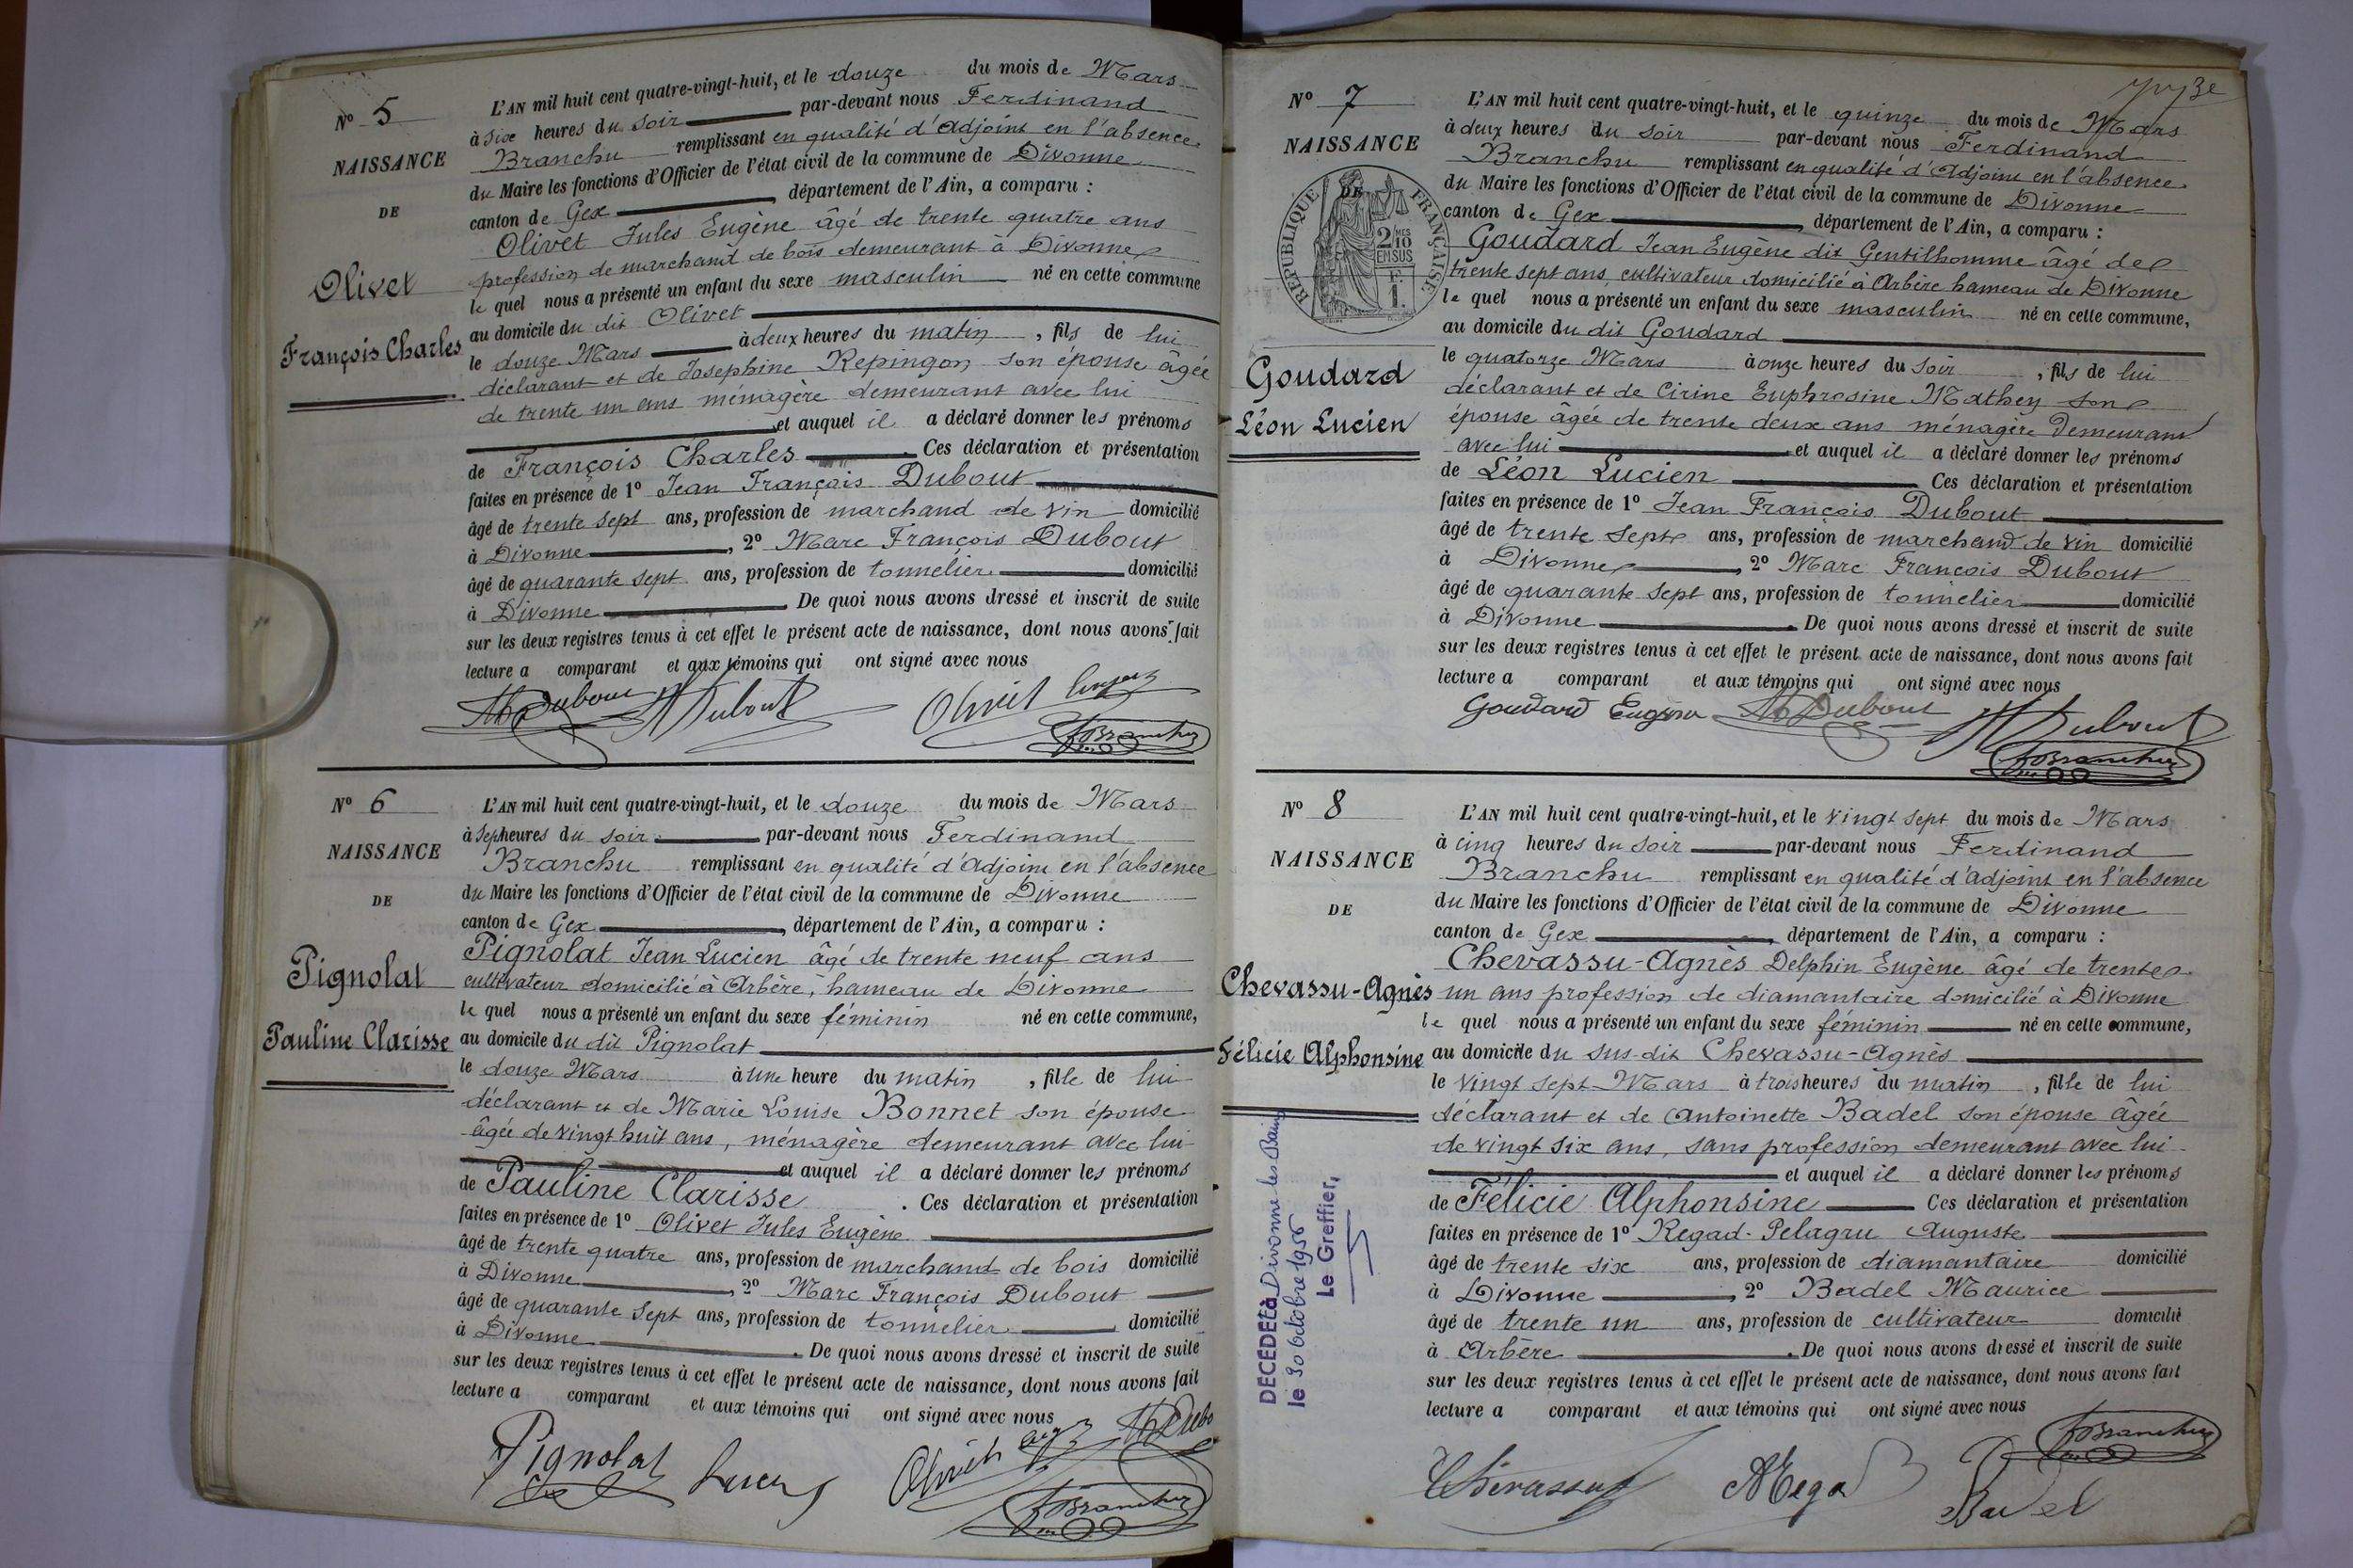 N° 5
NAISSANCE
DE
Olivet
François Charles
L'AN mil huit cent quatre-vingt-huit, et le douze du mois de Mars
à six heures du soir par-devant nous Ferdinand
Branchu remplissant en qualité d'adjoint en l'absence
du Maire les fonctions d'Officier de l'état civil de la commune de Divonne
canton de Gex, département de l'Ain, a comparu :
Olivet Jules Eugène âgé de trente quatre ans
profession de marchand de bois demeurant à Divonne
le quel nous a présenté un enfant du sexe masculin né en cette commune
au domicile du dit Olivet
le douze Mars à deux heures du matin, fils de lui
déclarant et de Josephine Repingon son épouse âgée
de trente un ans ménagère demeurant avec lui
et auquel il a déclaré donner les prénoms
de François Charles. Ces déclaration et présentation
faites en présence de 1° Jean François Dubout
âgé de trente sept ans, profession de marchand de vin domicilié
à Divonne, 2° Marc François Dubout
âgé de quarante sept ans, profession de tonnélier domicilié
à Divonne. De quoi nous avons dressé et inscrit de suite
sur les deux registres tenus à cet effet le présent acte de naissance, dont nous avons fait
lecture a comparant et aux témoins qui ont signé avec nous
Dubout Dubout Olivet
FBranchu
N° 6
NAISSANCE
DE
Pignolat
Pauline Clarisse
L'AN mil huit cent quatre-vingt-huit, et le douze du mois de Mars
à sept heures du soir par-devant nous Ferdinand
Branchu remplissant en qualité d'adjoint en l'absence
du Maire les fonctions d'Officier de l'état civil de la commune de Divonne
canton de Gex, département de l'Ain, a comparu :
Pignolat Jean Lucien âgé de trente neuf ans
cultivateur domicilié à Arbère, hameau de Divonne
le quel nous a présenté un enfant du sexe féminin né en cette commune,
au domicile du dit Pignolat
le douze Mars à une heure du matin, fille de lui
déclarant et de Marie Louise Bonnet son épouse
âgée de vingt huit ans, ménagère demeurant avec lui
et auquel il a déclaré donner les prénoms
de Pauline Clarisse. Ces déclaration et présentation
faites en présence de 1° Olivet Jules Eugène
âgé de trente quatre ans, profession de marchand de bois domicilié
à Divonne, 2° Marc François Dubout
âgé de quarante sept ans, profession de tonnelier domicilié
à Divonne. De quoi nous avons dressé et inscrit de suite
sur les deux registres tenus à cet effet le présent acte de naissance, dont nous avons fait
lecture a comparant et aux témoins qui ont signé avec nous
Pignolat Olivet
FBranchu
N° 7
NAISSANCE
DE
RÉPUBLIQUE FRANÇAISE
2/10 MES
EN SUS
F
1.
Goudard
Léon Lucien
L'AN mil huit cent quatre-vingt-huit, et le quinze du mois de Mars
à deux heures du soir par-devant nous Ferdinand
Branchu remplissant en qualité d'adjoint en l'absence
du Maire les fonctions d'Officier de l'état civil de la commune de Divonne
canton de Gex, département de l'Ain, a comparu :
Goudard Jean Eugène dit Gentilhomme âgé de
trente sept ans, cultivateur domicilié à Arbère hameau de Divonne
le quel nous a présenté un enfant du sexe masculin né en cette commune,
au domicile du dit Goudard
le quatorze Mars à onze heures du soir, fils de lui
déclarant et de Cirine Euphrosine Mathey son
épouse âgée de trente deux ans ménagère demeurant
avec lui et auquel il a déclaré donner les prénoms
de Léon Lucien Ces déclaration et présentation
faites en présence de 1° Jean François Dubout
âgé de trente sept ans, profession de marchand de vin domicilié
à Divonne, 2° Marc François Dubout
âgé de quarante sept ans, profession de tonnelier domicilié
à Divonne. De quoi nous avons dressé et inscrit de suite
sur les deux registres tenus à cet effet le présent acte de naissance, dont nous avons fait
lecture a comparant et aux témoins qui ont signé avec nous
Goudard Eugène Dubout Dubout
FBranchu
N° 8
NAISSANCE
DE
Chevassu-Agnès
Félicie Alphonsine
DÉCÉDÉE à Divonne les Bains
le 30 octobre 1955
Le Greffier,
L'AN mil huit cent quatre-vingt-huit, et le vingt sept du mois de Mars
à cinq heures du soir par-devant nous Ferdinand
Branchu remplissant en qualité d'adjoint en l'absence
du Maire les fonctions d'Officier de l'état civil de la commune de Divonne
canton de Gex, département de l'Ain, a comparu :
Chevassu-Agnès Delphin Eugène âgé de trente
un ans profession de diamantaire domicilié à Divonne
le quel nous a présenté un enfant du sexe féminin né en cette commune,
au domicile du sus-dit Chevassu-Agnès
le vingt sept Mars à trois heures du matin, fille de lui
déclarant et de Antoinette Badel son épouse âgée
de vingt six ans, sans profession demeurant avec lui
et auquel il a déclaré donner les prénoms
de Félicie Alphonsine Ces déclaration et présentation
faites en présence de 1° Regad-Pelagru Auguste
âgé de trente six ans, profession de diamantaire domicilié
à Divonne, 2° Badel Maurice
âgé de trente un ans, profession de cultivateur domicilié
à Arbère. De quoi nous avons dressé et inscrit de suite
sur les deux registres tenus à cet effet le présent acte de naissance, dont nous avons fait
lecture a comparant et aux témoins qui ont signé avec nous
FBranchu
Chevassu ARegad Badel